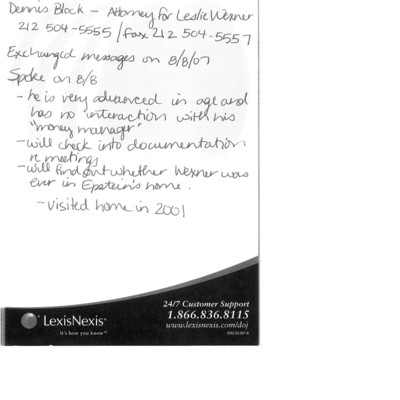 Dennis Block – Attorney for Leslie Wexner
212 504-5555 / fax 212 504-5557
Exchanged messages on 8/8/07
Spoke on 8/8
- he is very advanced in age and
has no interaction with his
"money manager"
- will check into documentation
re meetings
- will find out whether Wexner was
ever in Epstein's home.
- visited home in 2001
24/7 Customer Support
1.866.836.8115
www.lexisnexis.com/doj
LexisNexis®
It's how you know™